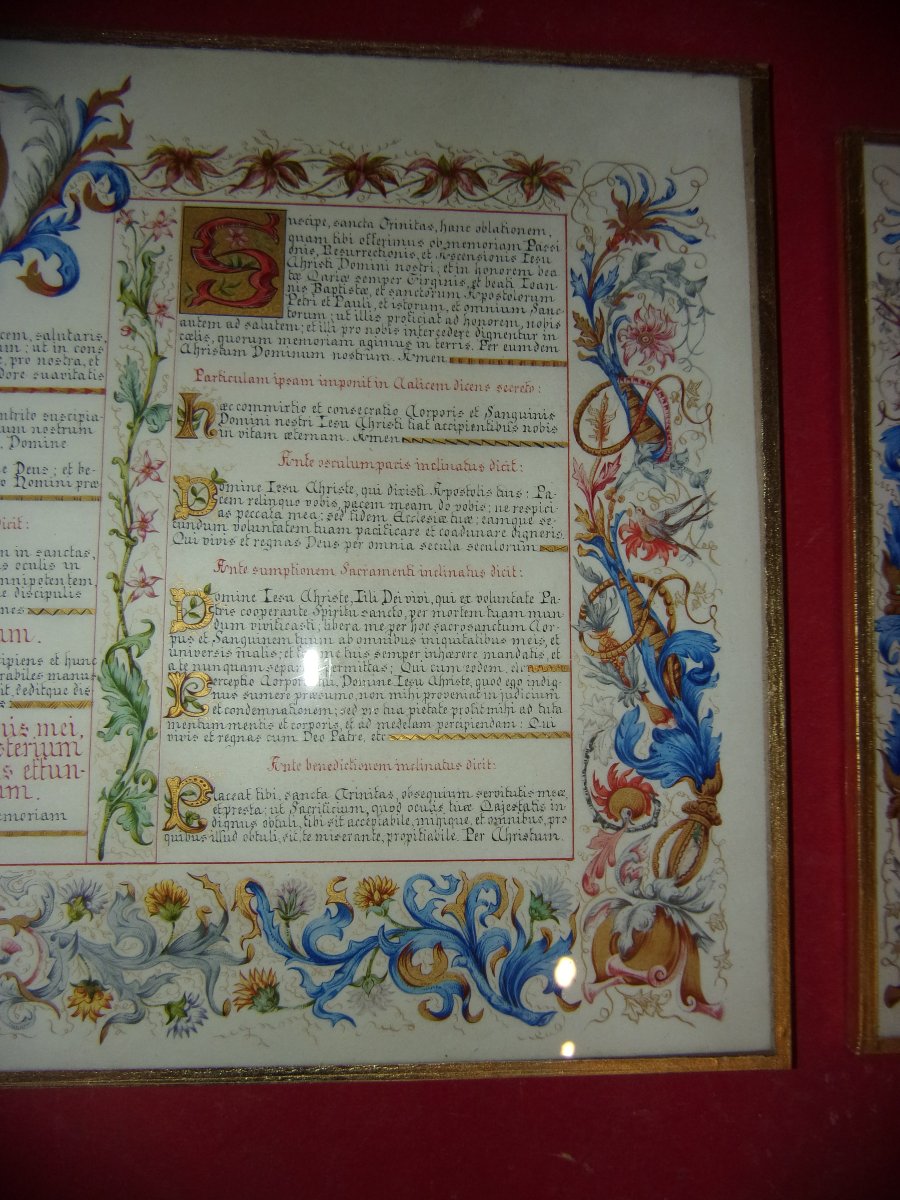 cem, salutaris,
am: ut in cons
e, pro nostra, et
dore suavitatis
ntrito suscipia-
uum nostrum
Domine
e Deus: et be-
o Nomini præ
dicit:
n in sanctas,
s oculis in
mnipotentem,
e discipulis
nes
um.
ipiens et hunc
rabiles manus
it, deditque dis
s
nis mei,
sterium
s effun-
um.
memoriam
Suscipe, sancta Trinitas, hanc oblationem,
quam tibi offerimus ob memoriam Passi
onis, Resurrectionis, et Ascensionis Iesu
Christi Domini nostri; et in honorem bea
tæ Mariæ semper Virginis, et beati Ioan-
nis Baptistæ, et sanctorum Apostolorum
Petri et Pauli, et istorum, et omnium Sanc
torum; ut illis proficiat ad honorem, nobis
autem ad salutem; et illi pro nobis intercedere dignentur in
cælis, quorum memoriam agimus in terris. Per eumdem
Christum Dominum nostrum. Amen
Particulam ipsam imponit in Calicem dicens secreto:
Hæc commixtio et consecratio Corporis et Sanguinis
Domini nostri Iesu Christi fiat accipientibus nobis
in vitam æternam. Amen
Ante osculum pacis inclinatus dicit:
Domine Iesu Christe, qui dixisti Apostolis tuis: Pa-
cem relinquo vobis, pacem meam do vobis; ne respici-
as peccata mea; sed fidem Ecclesiæ tuæ; eamque se-
cundum voluntatem tuam pacificare et coadunare digneris.
Qui vivis et regnas Deus per omnia secula seculorum
Ante sumptionem Sacramenti inclinatus dicit:
Domine Iesu Christe, Fili Dei vivi, qui ex voluntate Pa-
tris cooperante Spiritu sancto, per mortem tuam mun-
dum vivificasti; libera me per hoc sacrosanctum Cor-
pus et Sanguinem tuum ab omnibus iniquitatibus meis, et
universis malis; et me tuis semper inhærere mandatis, et
a te nunquam separ ermittas; Qui cum eodem, etc
Perceptio Corporis Domine Iesu Christe, quod ego indig-
nus sumere præsumo, non mihi proveniat in judicium
et condemnationem; sed pro tua pietate prosit mihi ad tuta
mentum mentis et corporis, et ad medelam percipiendam: Qui
vivis et regnas cum Deo Patre, etc
Ante benedictionem inclinatus dicit:
Placeat tibi, sancta Trinitas, obsequium servitutis meæ,
et præsta: ut Sacrificium, quod oculis tuæ Majestatis in-
dignus obtuli, tibi sit acceptabile, mihique, et omnibus, pro
quibus illud obtuli, sit, te miserante, propitiabile. Per Christum.